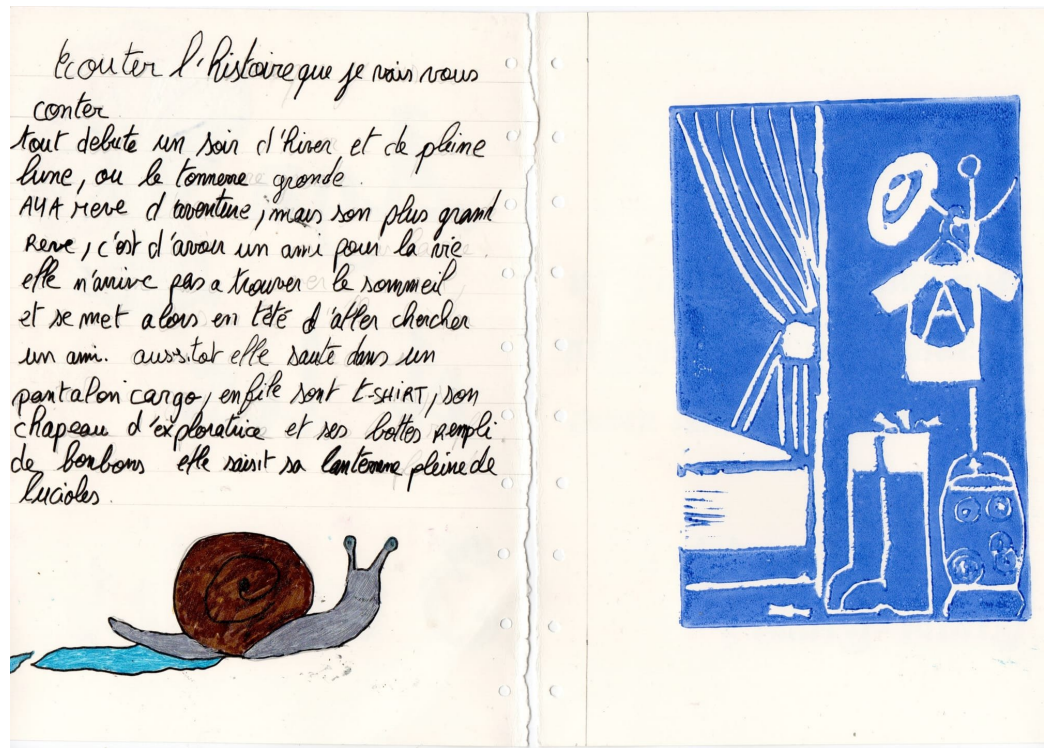 Ecouter l'histoire que je vais vous
conter
tout debute un soir d'hiver et de pleine
lune, ou le tonnerre gronde.
AYA reve d'aventure, mais son plus grand
Reve, c'est d'avoir un ami pour la vie.
elle n'arrive pas a trouver le sommeil
et se met alors en tété d'aller chercher
un ami. aussitot elle saute dans un
pantalon cargo, enfile sont t-SHIRT, son
chapeau d'exploratrice et ses bottes Rempli
de bonbons elle saisit sa lanterne pleine de
lucioles.
A